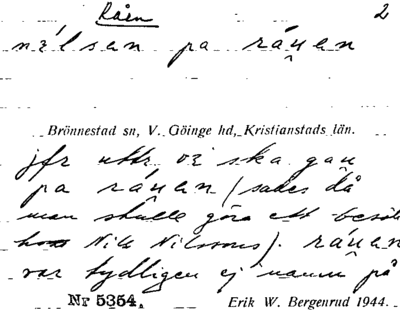 Råen 2
nilsan pa ráṷan
Brönnestad sn, V. Göinge hd, Kristianstads län.
jfr uttr. vi ska gau
pa ráṷan (sades då
man skulle göra ett besök
hos Nils Nilssons). ráṷan
var tydligen ej namn på
Nr 5354. Erik W. Bergenrud 1944.